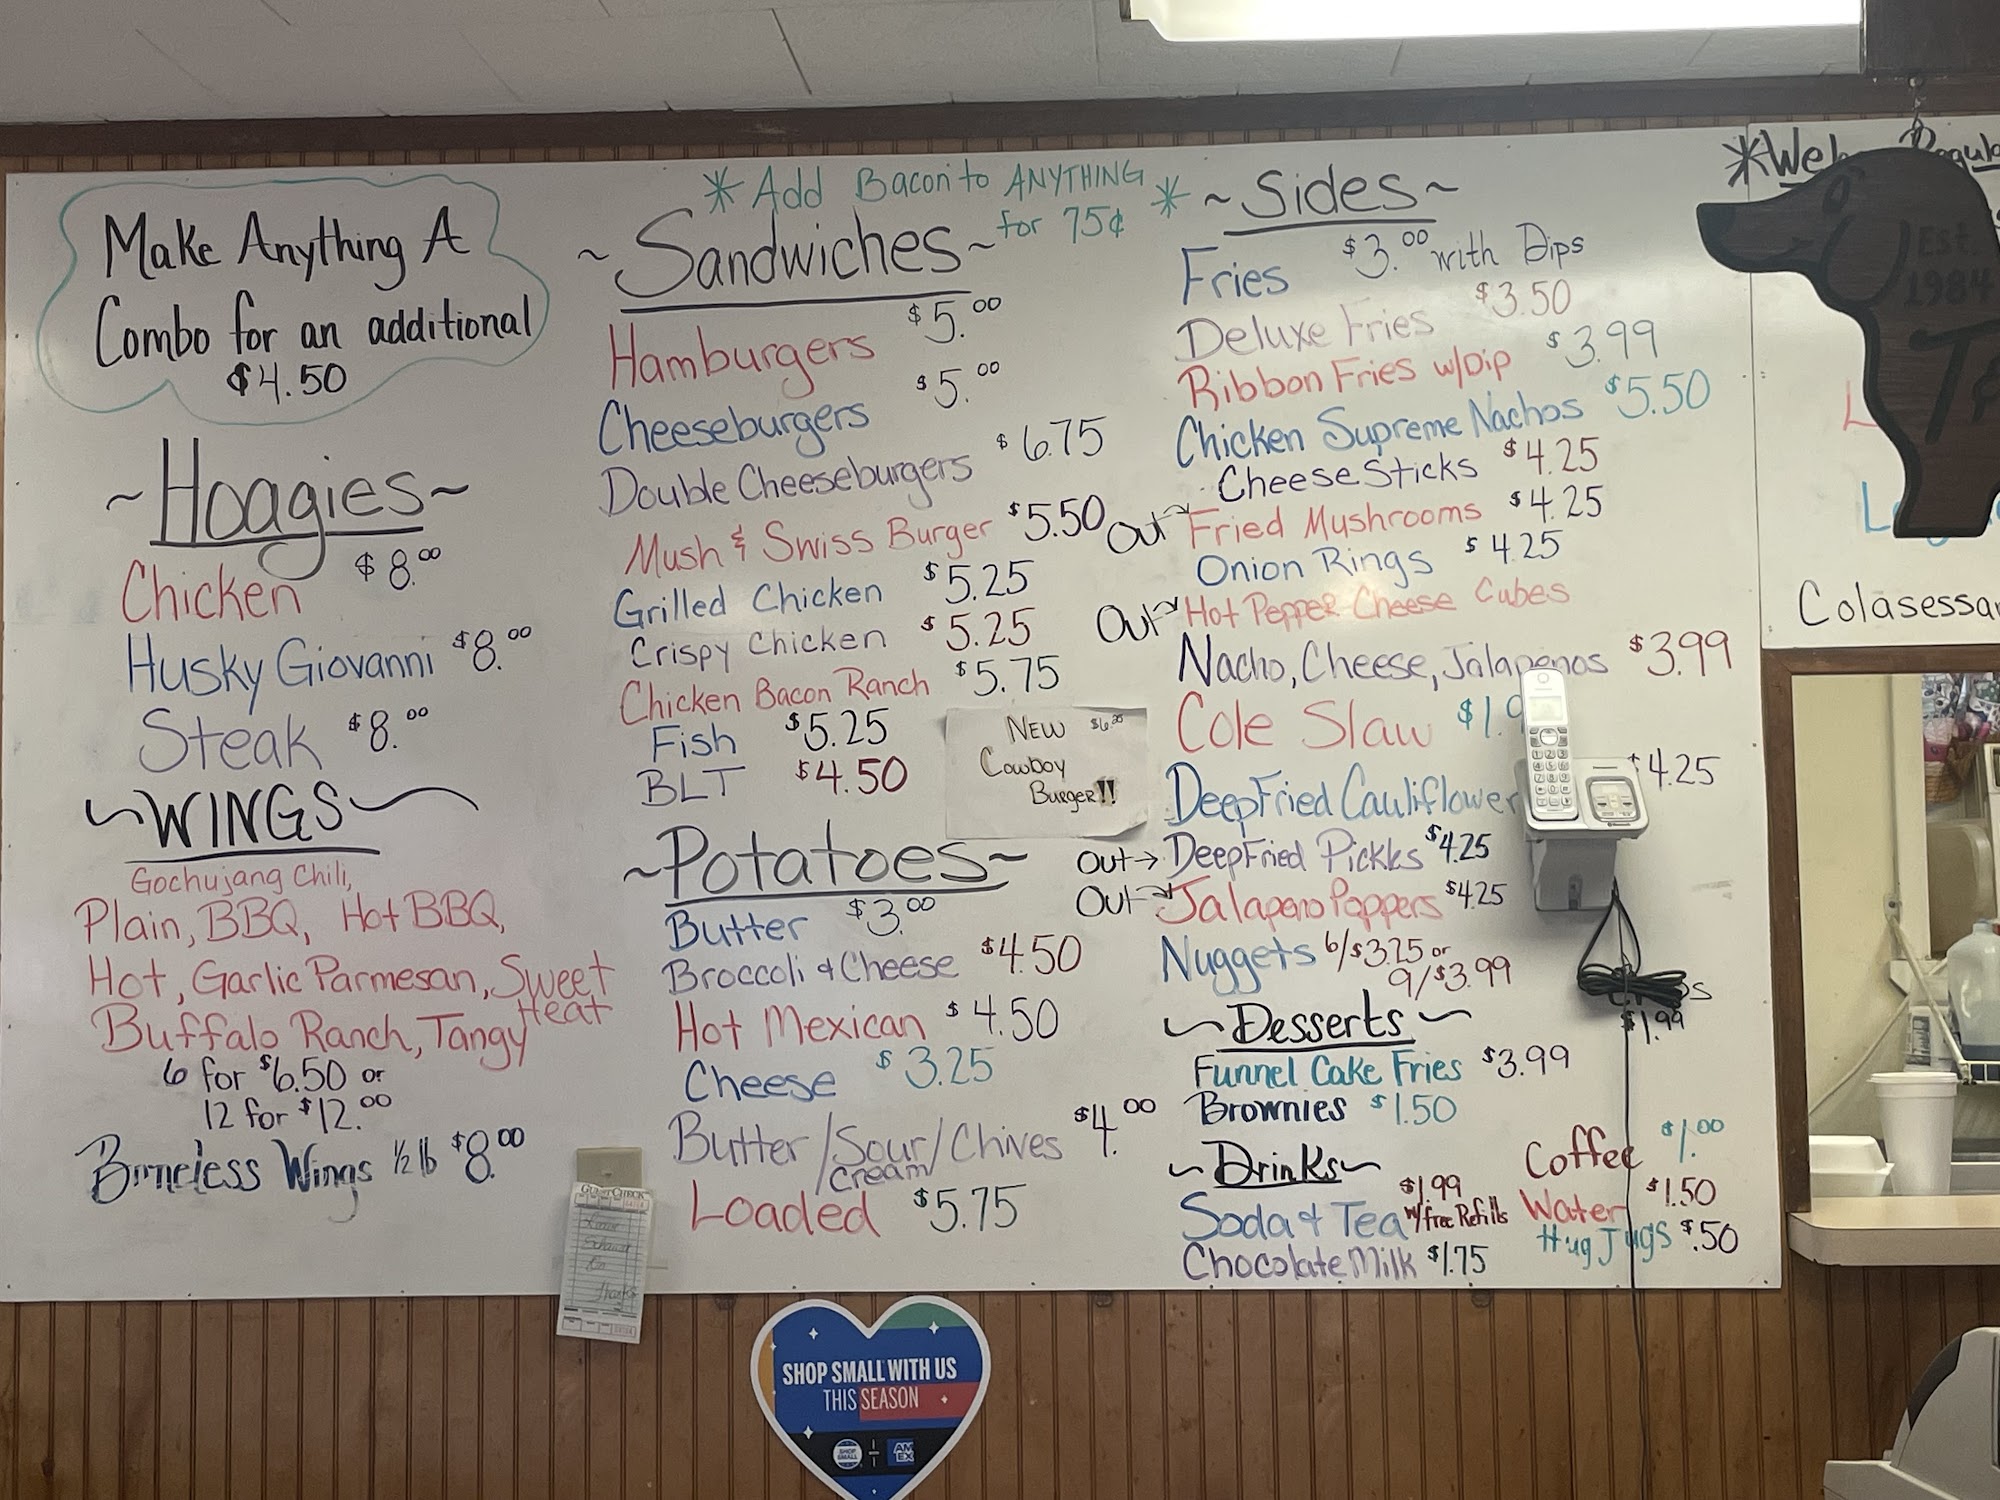 Make Anything A
Combo for an additional
$4.50
~Hoagies~
Chicken $8.00
Husky Giovanni $8.00
Steak $8.00
~WINGS~
Gochujang Chili,
Plain, BBQ, Hot BBQ,
Hot, Garlic Parmesan, Sweet Heat
Buffalo Ranch, Tangy
6 for $6.50 or
12 for $12.00
Boneless Wings 1/2 lb $8.00
*Add Bacon to ANYTHING*
for 75¢
~Sandwiches~
Hamburgers $5.00
Cheeseburgers $5.00
Double Cheeseburgers $6.75
Mush & Swiss Burger $5.50
Grilled Chicken $5.25
Crispy Chicken $5.25
Chicken Bacon Ranch $5.75
Fish $5.25
BLT $4.50
NEW
Cowboy
Burger!!
~Potatoes~
Butter $3.00
Broccoli & Cheese $4.50
Hot Mexican $4.50
Cheese $3.25
Butter/Sour Cream/Chives $4.00
Loaded $5.75
~Sides~
Fries $3.00 with Dips
Deluxe Fries $3.50
Ribbon Fries w/Dip $3.99
Chicken Supreme Nachos $5.50
Cheese Sticks $4.25
Out→ Fried Mushrooms $4.25
Onion Rings $4.25
Out→ Hot Pepper Cheese Cubes
Nacho, Cheese, Jalapenos $3.99
Cole Slaw $1.9
DeepFried Cauliflower $4.25
Out→ DeepFried Pickles $4.25
Out→ Jalapeno Poppers $4.25
Nuggets 6/$3.25 or
9/$3.99
$1.99
~Desserts~
Funnel Cake Fries $3.99
Brownies $1.50
~Drinks~
Soda & Tea $1.99
w/free Refills
Chocolate Milk $1.75
Coffee $1.00
Water $1.50
Hug Jugs $.50
Est.
1984
Colasessa
GUEST CHECK
SHOP SMALL WITH US
THIS SEASON
SHOP
SMALL
AM
EX